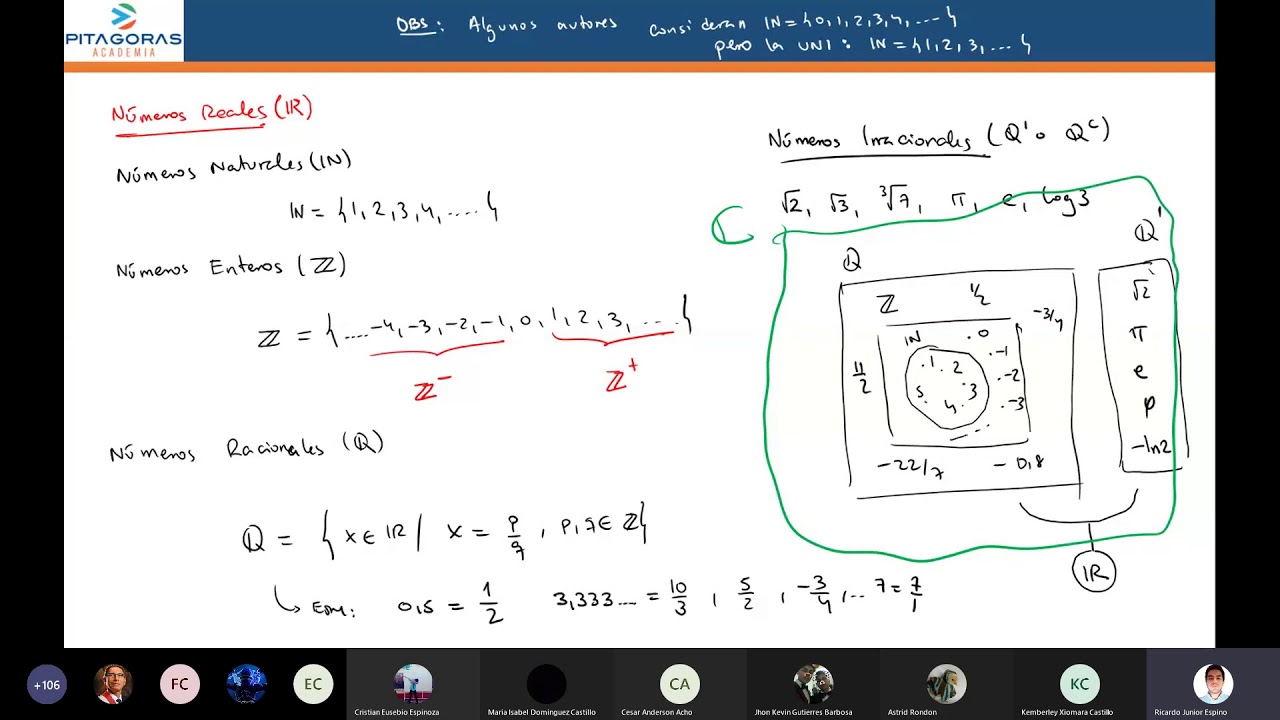 PITAGORAS
ACADEMIA
OBS: Algunos autores consideran IN = {0, 1, 2, 3, 4, ....}
pero la UNI: IN = {1, 2, 3, ...}
Números Reales (IR)
Números Naturales (IN)
IN = {1, 2, 3, 4, .....}
Números Enteros (ℤ)
ℤ = {....-4, -3, -2, -1, 0, 1, 2, 3, .....}
ℤ⁻ ℤ⁺
Números Racionales (ℚ)
ℚ = {x ∈ IR / x = p/q, p, q ∈ ℤ}
Ejm: 0,5 = 1/2 3,333... = 10/3, 5/2, -3/4, ... 7 = 7/1
Números Irracionales (ℚ' o ℚᶜ)
√2, √3, ³√7, π, e, log3
ℂ
ℚ ℚ'
ℤ 1/2 -3/4 √2
IN .0 π
11/2 .1 2 .-1 e
5. 4. .3 .-2 .-3
-22/7 -0,8 -ln2
IR
+106
FC
EC
CA
KC
Cristian Eusebio Espinoza
Maria Isabel Dominguez Castillo
Cesar Anderson Acho
Jhon Kevin Gutierres Barbosa
Astrid Rondon
Kemberley Xiomara Castillo
Ricardo Junior Espino